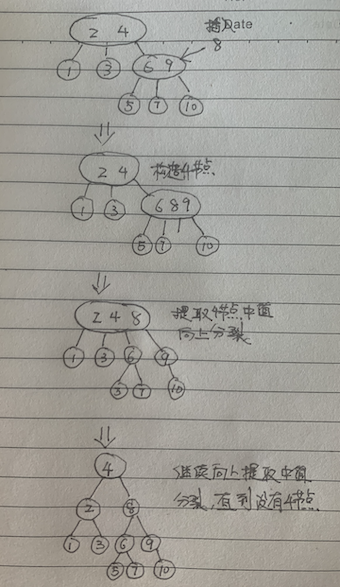 2 4
插入Date
8
1 3 6 9
5 7 10
2 4
构造4节点
1 3
6 8 9
5 7 10
2 4 8
提取4节点中值
向上分裂
1 3 6 9
5 7 10
4
继续向上提取中值
分裂,直到没有4节点
2 8
1 3 6 9
5 7 10